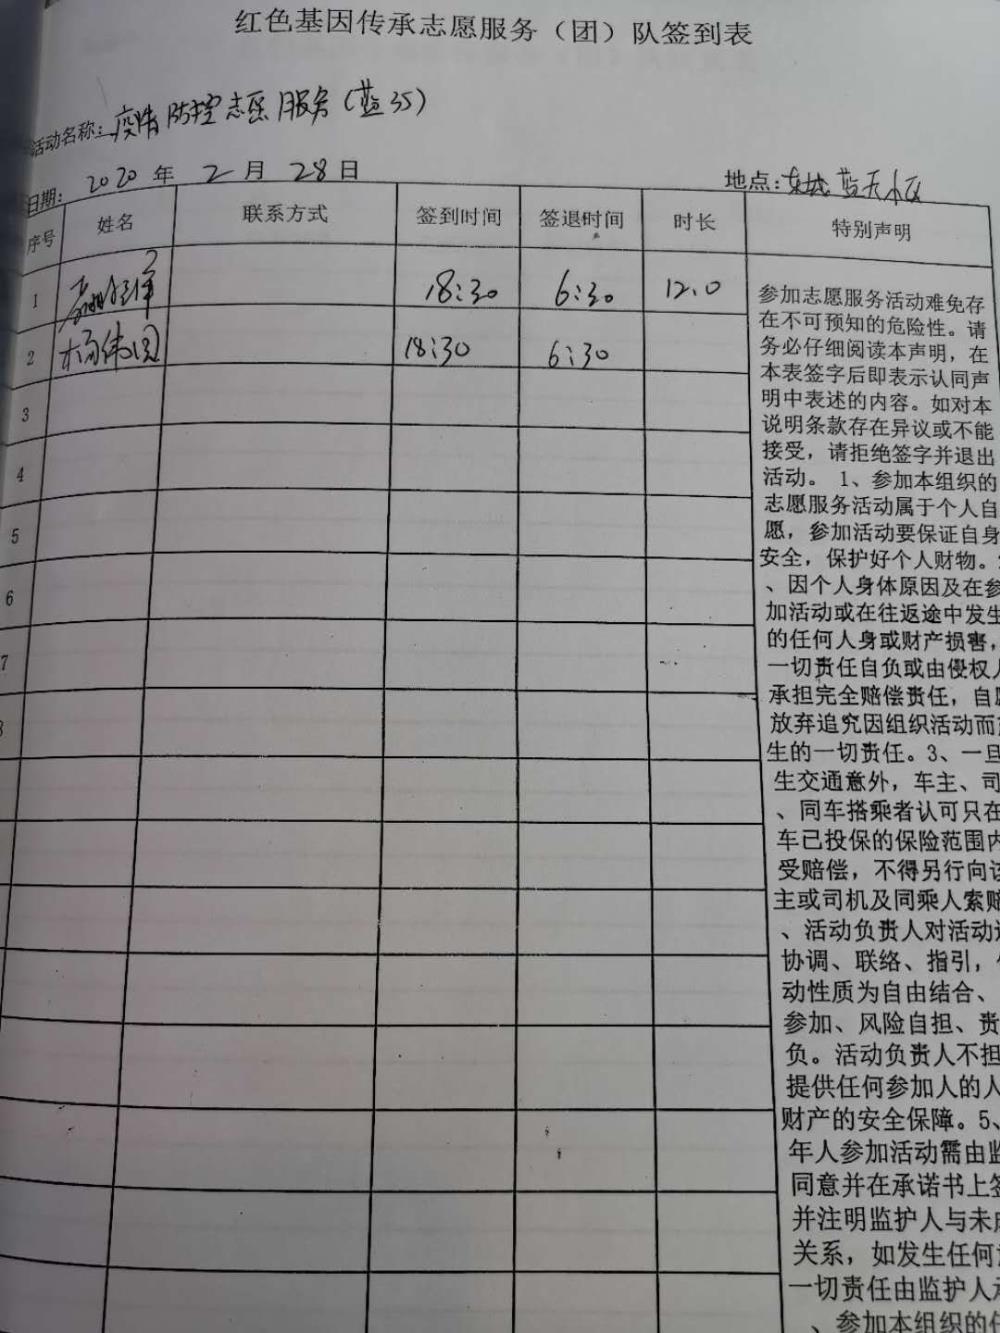 红色基因传承志愿服务（团）队签到表
活动名称：疫情防控志愿服务（蓝35）
日期：2020年2月28日 地点：东城蓝天小区
序号 姓名 联系方式 签到时间 签退时间 时长 特别声明
1 18:30 6:30 12.0
2 杨伟国 18:30 6:30
3
4
5
6
7
8
参加志愿服务活动难免存
在不可预知的危险性。请
务必仔细阅读本声明，在
本表签字后即表示认同声
明中表述的内容。如对本
说明条款存在异议或不能
接受，请拒绝签字并退出
活动。 1、参加本组织的
志愿服务活动属于个人自
愿，参加活动要保证自身
安全，保护好个人财物。
、因个人身体原因及在参
加活动或在往返途中发生
的任何人身或财产损害，
一切责任自负或由侵权人
承担完全赔偿责任，自愿
放弃追究因组织活动而
生的一切责任。3、一旦
生交通意外，车主、司
、同车搭乘者认可只在
车已投保的保险范围内
受赔偿，不得另行向该
主或司机及同乘人索赔
、活动负责人对活动
协调、联络、指引，
动性质为自由结合、
参加、风险自担、责
负。活动负责人不担
提供任何参加人的人
财产的安全保障。5、
年人参加活动需由监
同意并在承诺书上签
并注明监护人与未成
关系，如发生任何
一切责任由监护人承
、参加本组织的任